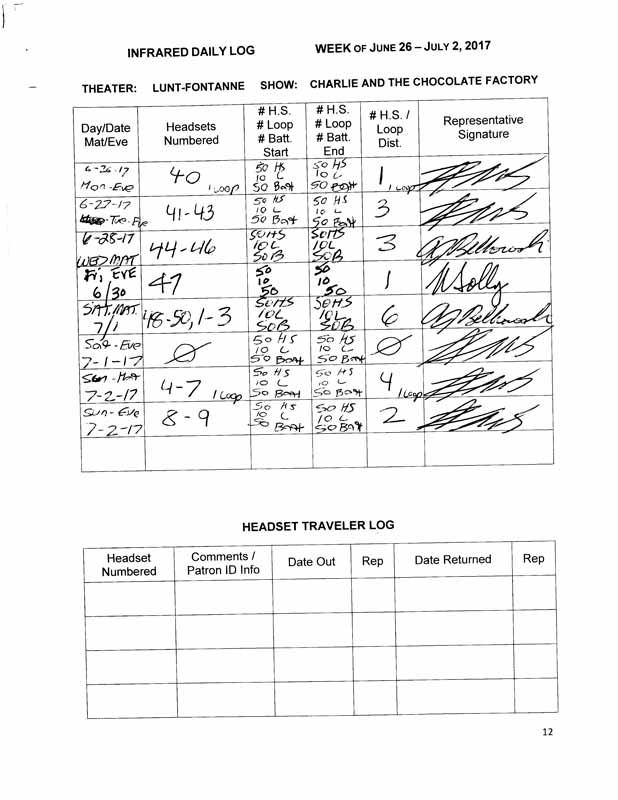 INFRARED DAILY LOG WEEK OF JUNE 26 – JULY 2, 2017
THEATER: LUNT-FONTANNE SHOW: CHARLIE AND THE CHOCOLATE FACTORY
Day/Date
Mat/Eve
Headsets
Numbered
# H.S.
# Loop
# Batt.
Start
# H.S.
# Loop
# Batt.
End
# H.S. /
Loop
Dist.
Representative
Signature
6-26-17
Mon-Eve
40
1 Loop
50 HS
10 L
50 Batt
50 HS
10 L
50 Batt
1
1 Loop
6-27-17
Tue-Eve
41-43
50 HS
10 L
50 Batt
50 HS
10 L
50 Batt
3
6-28-17
WED MAT
44-46
50HS
10L
50B
50HS
10L
50B
3
Fri, EVE
6/30
47
50
10
50
50
10
50
1
SAT. MAT.
7/1
48-50, 1-3
50HS
10L
50B
50HS
10L
50B
6
Sat-Eve
7-1-17
Ø
50 HS
10 L
50 Batt
50 HS
10 L
50 Batt
Ø
Sun-Mat
7-2-17
4-7
1 Loop
50 HS
10 L
50 Batt
50 HS
10 L
50 Batt
4
1 Loop
Sun-Eve
7-2-17
8-9
50 HS
10 L
50 Batt
50 HS
10 L
50 Batt
2
HEADSET TRAVELER LOG
Headset
Numbered
Comments /
Patron ID Info
Date Out
Rep
Date Returned
Rep
12